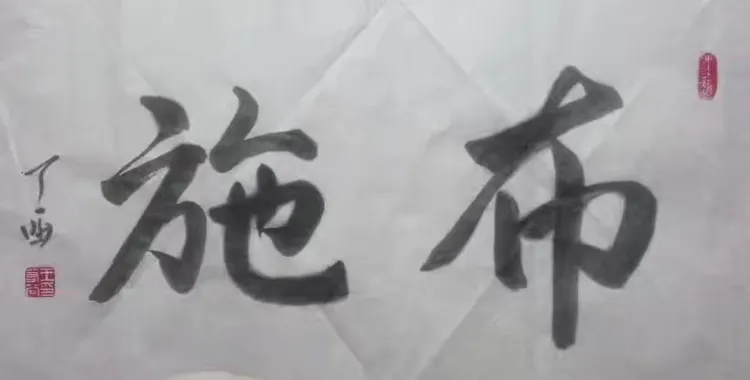 布施
丁酉